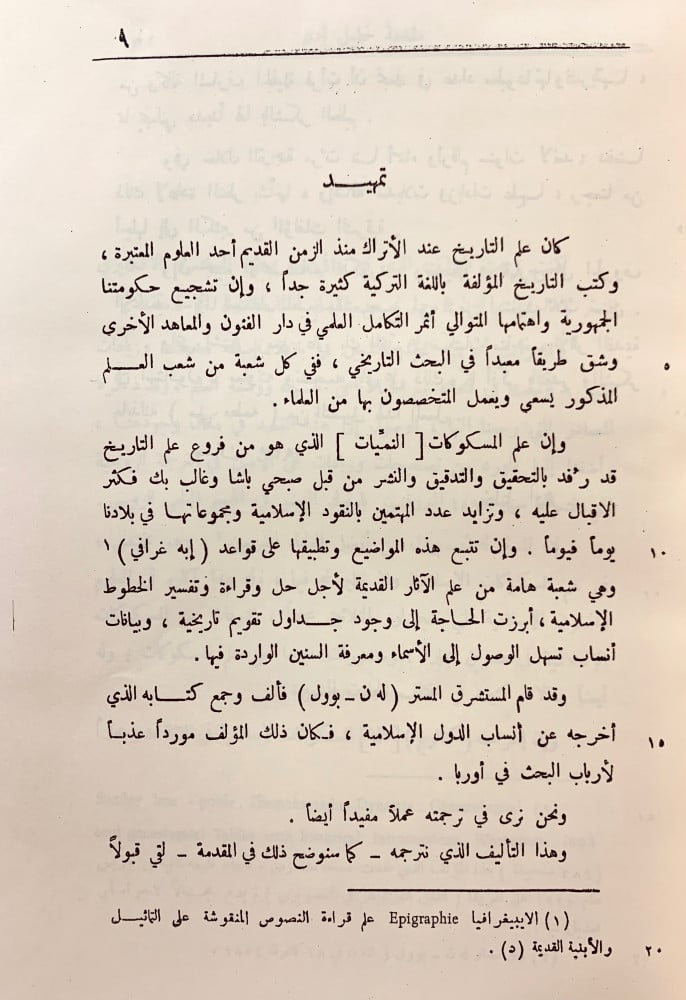 ٩
تمهيـــد
كان علم التاريخ عند الأتراك منذ الزمن القديم أحد العلوم المعتبرة ،
وكتب التاريخ المؤلفة باللغة التركية كثيرة جداً ، وإن تشجيع حكومتنا
الجمهورية واهتمامها المتوالي أثمر التكامل العلمي في دار الفنون والمعاهد الأخرى
وشق طريقاً معبداً في البحث التاريخي ، ففي كل شعبة من شعب العــلم ٥
المذكور يسعى ويعمل المتخصصون بها من العلماء .
وإن علم المسكوكات [ النميّات ] الذي هو من فروع علم التاريخ
قد رُفد بالتحقيق والتدقيق والنشر من قبل صبحي باشا وغالب بك فكثر
الاقبال عليه ، وتزايد عدد المهتمين بالنقود الإسلامية ومجموعاتهـا في بلادنا
يوماً فيوماً . وإن تتبع هذه المواضيع وتطبيقها على قواعد ( إبه غرافي ) ١ ١٠
وهي شعبة هامة من علم الآثار القديمة لأجل حل وقراءة وتفسير الخطوط
الإسلامية ، أبرزت الحـاجة إلى وجود جــداول تقويم تاريخية ، وبيانات
أنساب تسهل الوصول إلى الأسماء ومعرفة السنين الواردة فيها .
وقد قام المستشرق المستر ( له ن ـ بوول ) فألف وجمع كتــابه الذي
أخرجه عن أنساب الدول الإسلامية ، فـكان ذلك المؤلف مورداً عذبـاً ١٥
لأرباب البحث في أوربا .
ونحن نرى في ترجمته عملاً مفيداً أيضاً .
وهذا التأليف الذي نترجمه ـ كما سنوضح ذلك في المقدمة ـ لقي قبولاً
( ١ ) الايبيغرافيا Epigraphie علم قراءة النصوص المنقوشة على التماثيــل
والأبنية القديمة ( د ) . ٢٠